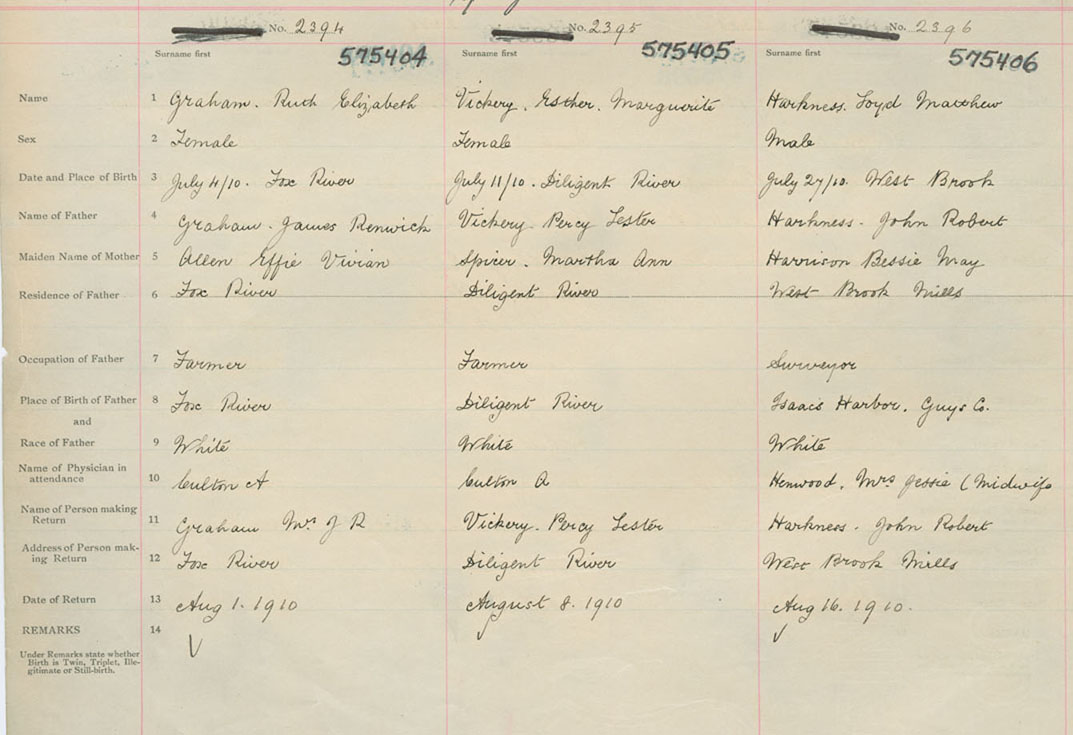 No. 2394 No. 2395 No. 2396
Surname first 575404 Surname first 575405 Surname first 575406
Name 1 Graham. Ruth Elizabeth Vickery. Esther. Marguerite Harkness. Loyd Matthew
Sex 2 Female Female Male
Date and Place of Birth 3 July 4/10. Fox River July 11/10. Diligent River July 27/10. West Brook
Name of Father 4 Graham. James Renwick Vickery. Percy Lester Harkness. John Robert
Maiden Name of Mother 5 Allen Effie Vivian Spicer. Martha Ann Harrison Bessie May
Residence of Father 6 Fox River Diligent River West Brook Mills
Occupation of Father 7 Farmer Farmer Surveyor
Place of Birth of Father 8 Fox River Diligent River Isaacs Harbor. Guys Co.
and
Race of Father 9 White White White
Name of Physician in
attendance 10 Culton A Culton A Henwood. Mrs Jessie (Midwife
Name of Person making
Return 11 Graham Mrs J R Vickery. Percy Lester Harkness. John Robert
Address of Person mak-
ing Return 12 Fox River Diligent River West Brook Mills
Date of Return 13 Aug 1. 1910 August 8. 1910 Aug 16. 1910.
REMARKS 14
Under Remarks state whether
Birth is Twin, Triplet, Ille-
gitimate or Still-birth.